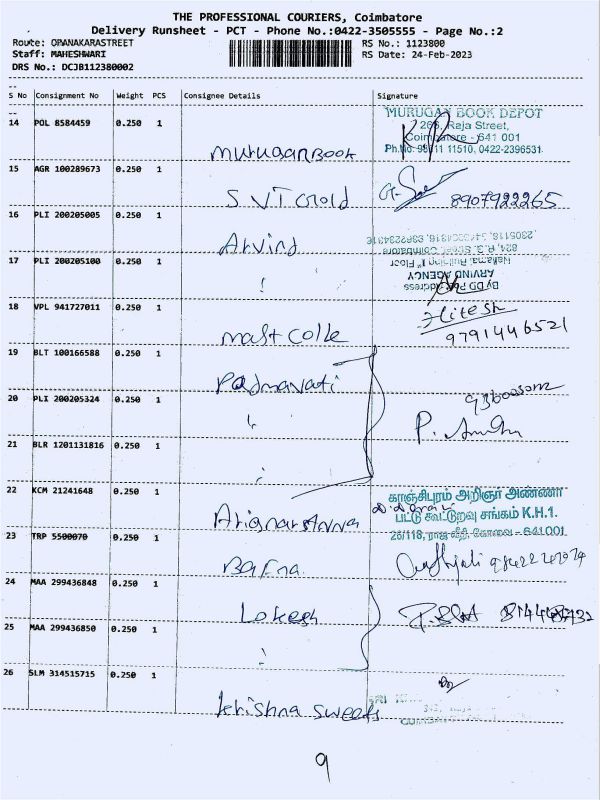 THE PROFESSIONAL COURIERS, Coimbatore
Delivery Runsheet - PCT - Phone No.:0422-3505555 - Page No.:2
Route: OPANAKARASTREET RS No.: 1123800
Staff: MAHESHWARI RS Date: 24-Feb-2023
DRS No.: DCJB112380002
S No Consignment No Weight PCS Consignee Details Signature
MURUGAN BOOK DEPOT
14 POL 8584459 0.250 1
Raja Street,
Coimbatore - 641 001
muruganBook Ph.No: 11510, 0422-2396531
15 AGR 100289673 0.250 1
S V T Gold 8907922265
16 PLI 200205005 0.250 1
Arvind
17 PLI 200205100 0.250 1
"
ARVIND AGENCY
18 VPL 941727011 0.250 1
Hitesh
mast Colle 9791446521
19 BLT 100166588 0.250 1
Padmavati
20 PLI 200205324 0.250 1
"
P.
21 BLR 1201131816 0.250 1
"
22 KCM 21241648 0.250 1
காஞ்சிபுரம் அறிஞர் அண்ணா
Arignar Anna பட்டு கூட்டுறவு சங்கம் K.H.1.
26/118, ராஜ வீதி, கோவை - 641001
23 TRP 5500070 0.250 1
Bafna
24 MAA 299436848 0.250 1
Lokesh
25 MAA 299436850 0.250 1
"
26 SLM 314515715 0.250 1
krishna sweets
9